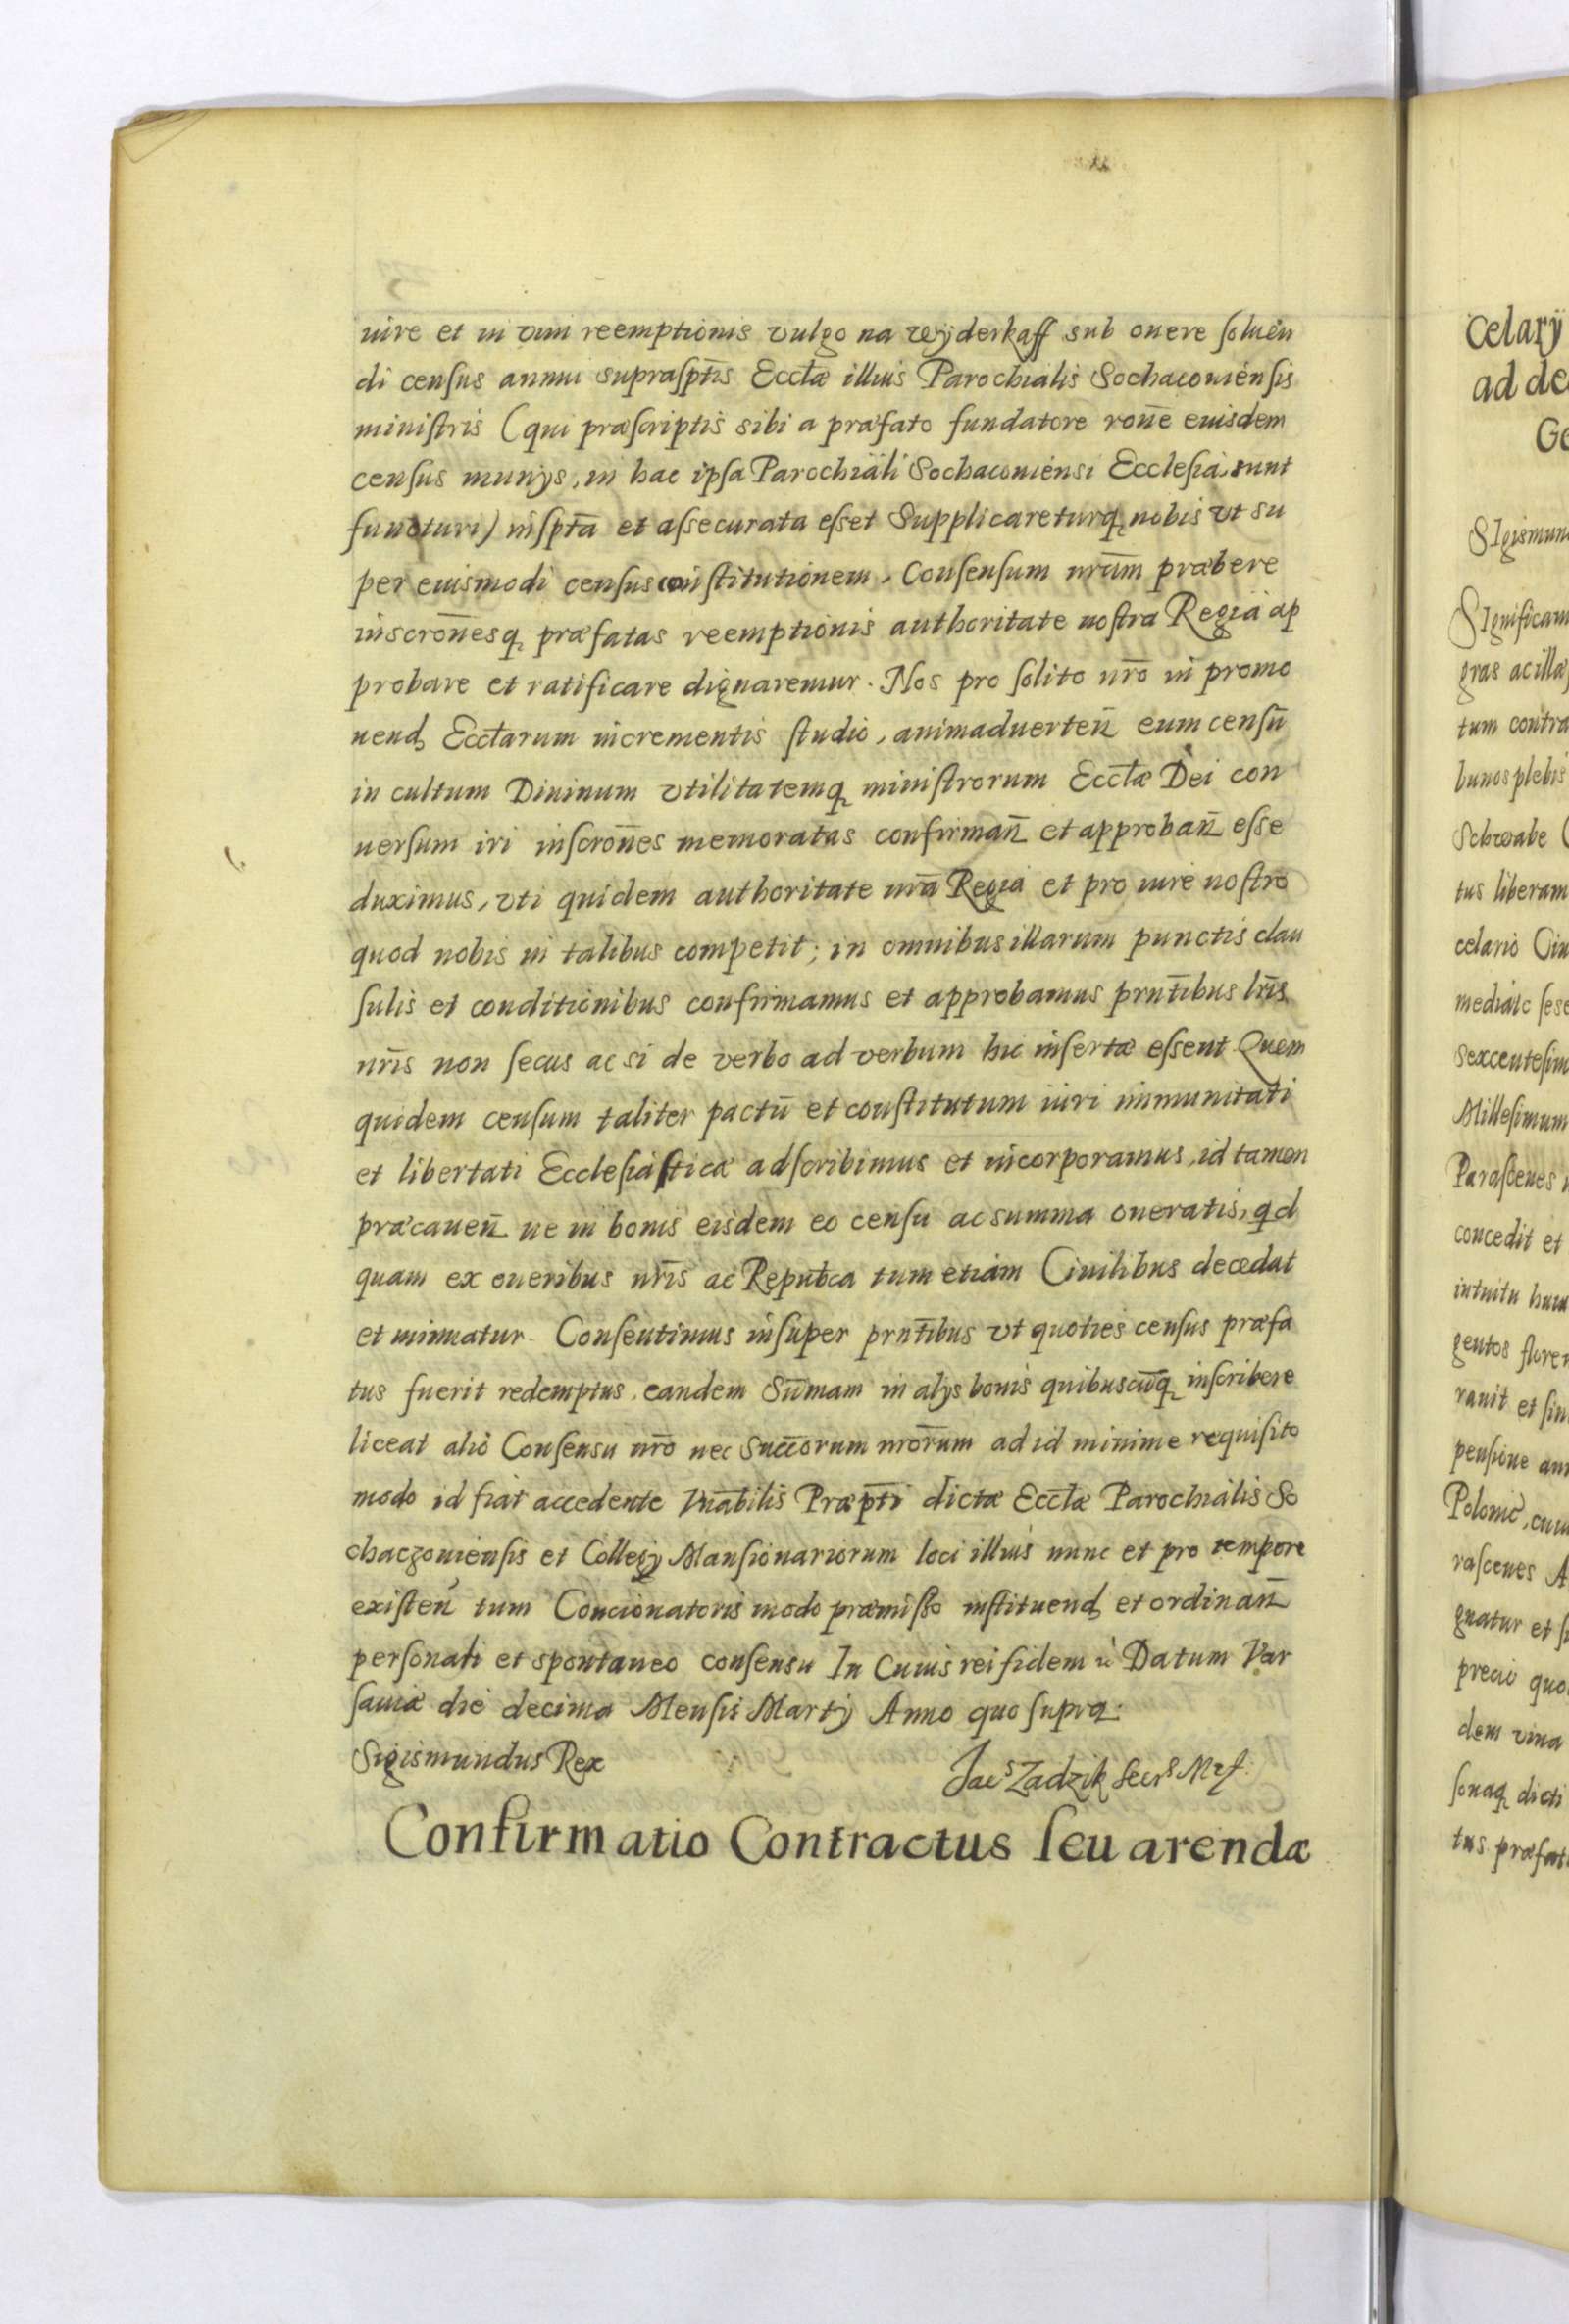 iure et in vim reemptionis vulgo na wyderkaff sub onere soluen
di census annui suprasptis Ecctæ illius Parochialis Sochacouiensis
ministris (qui præscriptis sibi a præfato fundatore rone eiusdem
census munijs, in hac ipsa Parochiali Sochacouiensi Ecclesia, sunt
functuri) inspta et assecurata esset Supplicareturq nobis vt su
per eiusmodi census constitutionem, Consensum nrum præbere
inscronesq præfatas reemptionis authoritate nostra Regia ap
probare et ratificare dignaremur. Nos pro solito nro in promo
uend Ecctarum incrementis studio, animaduerten eum censu
in cultum Diuinum vtilitatemq ministrorum Ecctæ Dei con
uersum iri inscrones memoratas confirman et approban esse
duximus, vti quidem authoritate nra Regia et pro iure nostro
quod nobis in talibus competit; in omnibus illarum punctis clau
sulis et conditionibus confirmamus et approbamus prntibus lris
nris non secus ac si de verbo ad verbum hic insertæ essent. Quem
quidem censum taliter pactu et constitutum iuri immunitati
et libertati Ecclesiasticæ adscribimus et incorporamus, id tamen
præcauen ne in bonis eisdem eo censu ac summa oneratis, qd
quam ex oneribus nris ac Repubca tum etiam Ciuilibus decedat
et minuatur. Consentimus insuper prntibus vt quoties census præfa
tus fuerit redemptus, eandem Sumam in alijs bonis quibuscuq inscribere
liceat alio Consensu nro nec Succorum nrorum ad id minime requisito
modo id fiat accedente Vnabilis Præpti dictæ Ecctæ Parochialis So
chaczouiensis et Collegij Mansionariorum loci illius nunc et pro tempore
existen tum Concionatoris modo præmisso instituend et ordinan
personali et spontaneo consensu In Cuius rei fidem Datum Var
sauiæ die decima Mensis Martij Anno quo supra.
Sigismundus Rex
Jacs Zadzik Secrs Mrf.
Confirmatio Contractus seu arendæ
celarij
ad de
Ge
SIgismun
SIgnificam
gras ac illa
tum contra
bunos plebis
Schwabe
tus liberam
celario Ciu
mediate sese
sexcentesim
Millesimum
Parascenes
concedit et
intuitu huiu
gentos floren
rauit et sin
pensione an
Polonic, cuiu
rascenes A
gnatur et s
precio quo
dem vina
sonaq dicti
tus præfat